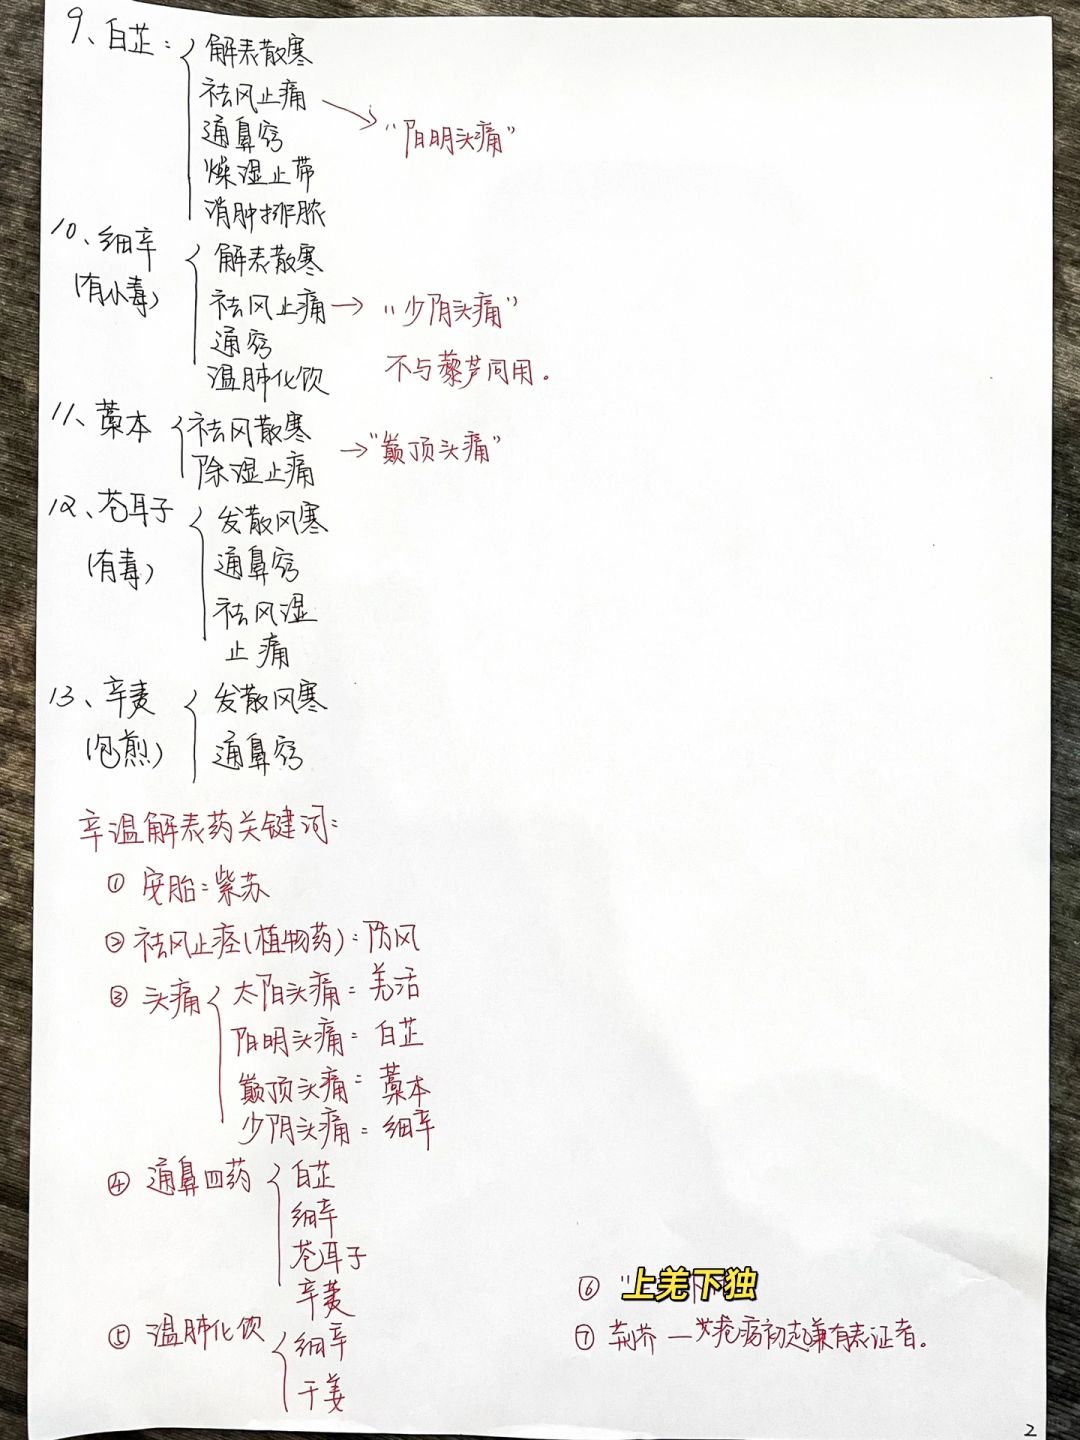 9、白芷：
解表散寒
祛风止痛 → “阳明头痛”
通鼻窍
燥湿止带
消肿排脓
10、细辛
(有小毒)
解表散寒
祛风止痛 → “少阴头痛”
通窍
不与藜芦同用。
温肺化饮
11、藁本
祛风散寒
除湿止痛
→ “巅顶头痛”
12、苍耳子
(有毒)
发散风寒
通鼻窍
祛风湿
止痛
13、辛夷
(包煎)
发散风寒
通鼻窍
辛温解表药关键词：
① 安胎：紫苏
② 祛风止痉(植物药)：防风
③ 头痛
太阳头痛：羌活
阳明头痛：白芷
巅顶头痛：藁本
少阴头痛：细辛
④ 通鼻四药
白芷
细辛
苍耳子
辛夷
⑤ 温肺化饮
细辛
干姜
⑥ 上羌下独
⑦ 荆芥—疮疡初起兼有表证者。
2